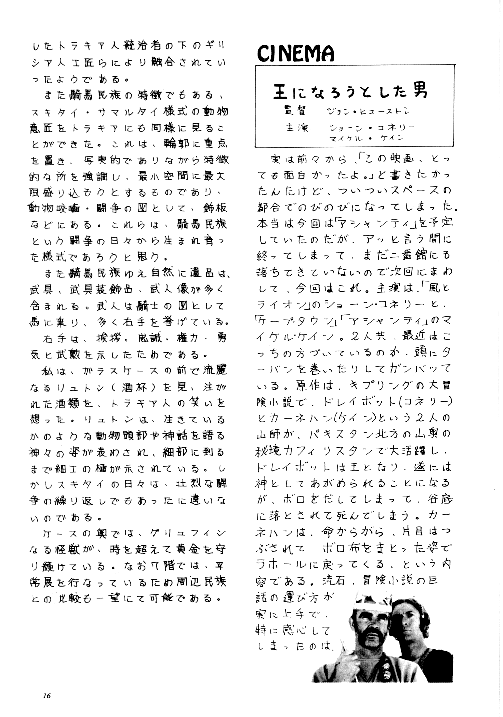 したトラキア人統治者の下のギリ
シア人工匠らにより融合されてい
ったようである。
また騎馬民族の特徴でもある、
スキタイ・サマルタイ様式の動物
意匠をトラキアにも同様に見るこ
とができた。これは、輪郭に重点
を置き、写実的でありながら特徴
的な所を強調し、最小空間に最大
限盛り込もうとするものであり、
動物咬噛・闘争の図として、飾板
などにある。これらは、騎馬民族
という闘争の日々から生まれ育っ
た様式であろうと思う。
また騎馬民族ゆえ自然に遺品は、
武具、武具装飾品、武人像が多く
含まれる。武人は騎士の図として
馬に乗り、多く右手を挙げている。
右手は、挨拶、威厳・権力・勇
気と武勲を示したためである。
私は、ガラスケースの前で流麗
なるリュトン(酒杯)を見、注が
れた酒類を、トラキア人の笑いと
想った。リュトンは、生きている
かのような動物頭部や神話を語る
神々の姿が表わされ、細部に到る
まで細工の極が示されている。し
かしスキタイの日々は、壮烈な闘
争の繰り返しでもあったに違いな
いのである。
ケースの奥では、グリュフィン
なる怪獣が、時を超えて黄金を守
り続けている。なお
常展を行なっているため周辺民族
との比較も一望にて可能である。
CINEMA
王になろうとした男
監督 ジョン・ヒューストン
主演 ショーン・コネリー
マイケル・ケイン
実は前々から、「この映画、とっ
ても面白かったよ。」と書きたかっ
たんだけど、ついついスペースの
都合でのびのびになってしまった。
本当は今回は「アシャンティ」を予定
していたのだが、アッと言う間に
終ってしまって、まだ二番館にも
落ちてきていないので次回にまわ
して、今回はこれ。主演は、「風と
ライオン」のショーン・コネリーと、
「ケープタウン」「アシャンティ」のマ
イケルケイン。2人共、最近はこ
っちの方づいているのか、頭にタ
ーバンを巻いたりしてガンバッて
いる。原作は、キプリングの大冒
険小説で、ドレイボット(コネリー)
とカーネハン(ケイン)という2人の
山師が、パキスタン北方の山奥の
秘境カフィリスタンで大活躍し、
ドレイボットは王となり、遂には
神としてあがめられることになる
が、ボロをだしてしまって、谷底
に落とされて死んでしまう。カー
ネハンは、命からがら、片目はつ
ぶされて、ボロ布をまとった姿で
ラホールに戻ってくる、という内
容である。流石、冒険小説の巨
話の運び方が
実に上手で、
特に感心して
しまったのは、
16